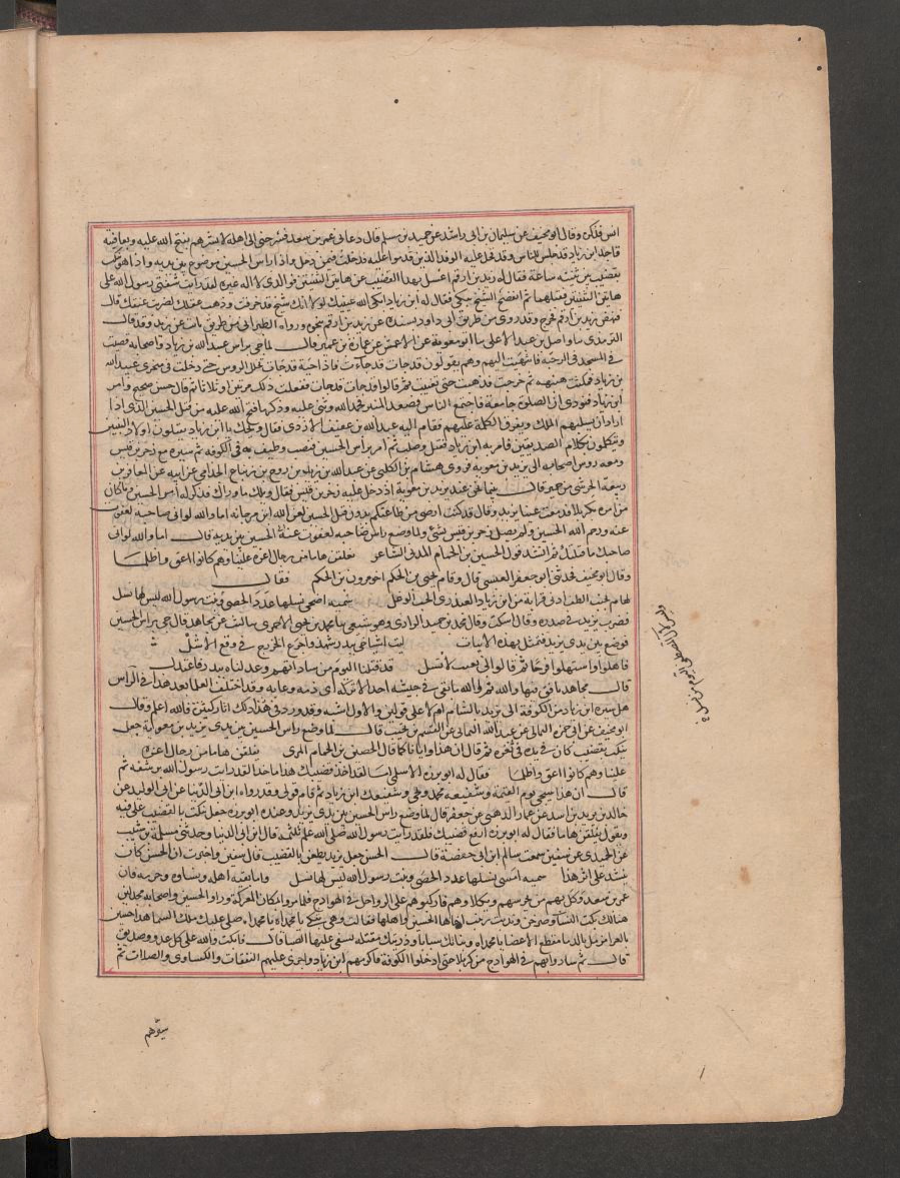 انس فذكره وقال ابو مخنف عن سليمان بن ابي راشد عن حميد بن مسلم قال دعاني عمر بن سعد فسرحني الى اهله لابشرهم بفتح الله عليه وبعافيته
فاجد ابن زياد قد جلس للناس وقد دخل عليه الوفد الذين قدموا عليه فدخلت فيمن دخل واذا راس الحسين موضوع بين يديه واذا هو ينكت
بقضيب بين ثنيتيه ساعة فقال له زيد بن ارقم اعل بهذا القضيب عن هاتين الثنيتين فوالذي لا اله غيره لقد رايت شفتي رسول الله على
هاتين الشفتين يقبلهما ثم انفضخ الشيخ يبكي فقال له ابن زياد ابكى الله عينيك لولا انك شيخ قد خرفت وذهب عقلك لضربت عنقك قال
فنهض زيد بن ارقم فخرج وقد روى من طريق ابي داود بسنده عن زيد بن ارقم بنحوه ورواه الطبراني من طريق ثابت عن زيد وقد قال
الترمذي ثنا واصل بن عبد الاعلى ثنا ابو معوية عن الاعمش عن عمارة بن عمير قال لما جي براس عبيد الله بن زياد واصحابه فنصبت
في المسجد في الرحبة فانتهيت اليهم وهم يقولون قد جات قد جاءت فاذا حية قد جات تخلل الروس حتى دخلت في منخري عبيد الله
بن زياد فمكثت هنيهة ثم خرجت فذهبت حتى تغيبت ثم قالوا قد جات قد جات ففعلت ذلك مرتين او ثلاثا ثم قال حسن صحيح وامر
ابن زياد فنودي ان الصلوة جامعة فاجتمع الناس فصعد المنبر فحمد الله واثنى عليه وذكر ما فتح الله عليه من قتل الحسين الذي اراد
ان يسلبهم الملك ويفرق الكلمة عليهم فقام اليه عبد الله بن عفيف الازدي فقال ويحك يا ابن زياد تقتلون اولاد النبيين
وتتكلمون بكلام الصديقين فامر به ابن زياد فقتل وصلب ثم امر براس الحسين فنصب وطيف به في الكوفة ثم سيره مع زحر بن قيس
ومعه روس اصحابه الى يزيد بن معوية فروى هشام بن الكلبي عن عبد الله بن يزيد بن روح بن زنباع الجذامي عن ابيه عن الغاز بن
ربيعة الجرشي من حمير قال بينما نحن عند يزيد بن معوية اذ دخل عليه زحر بن قيس فقال ويلك ما وراك فذكر له امر الحسين وما كان
من امره بكربلا فدمعت عينا يزيد وقال كنت ارضى من طاعتكم بدون قتل الحسين لعن الله ابن مرجانه اما والله لو اني صاحبه لعفوت
عنه ورحم الله الحسين ولم يصل زحر بن قيس بشئ ولما وضع راس الحسين بين يديه قال اما والله لو اني
صاحبك ما قتلتك ثم انشد قول الحسين بن الحمام المري الشاعر يفلقن هاما من رجال اعزة علينا وهم كانوا اعق واظلما
وقال ابو مخنف فحدثني ابو جعفر العبسي قال وقام يحيى بن الحكم اخو مروان بن الحكم فقال
لهام بجنب الطف ادنى قرابة من ابن زياد العبد ذي الحسب الوغل سميه اضحى نسلها عدد الحصى وبنت رسول الله ليس لها نسل
فضرب يزيد في صدره وقال اسكت وقال محمد بن حميد الرازي وهو شيعي ثنا محمد بن يحيى الاحمري ثنا ليث عن مجاهد قال جي براس الحسين
فوضع بين يدي يزيد فتمثل بهذه الابيات ليت اشياخي ببدر شهدوا جزع الخزرج في وقع الاسل
فاهلوا واستهلوا فرحا ثم قالوا لي بعيب لا تسل قد قتلنا اليوم من ساداتهم وعدلناه ببدر فاعتدل
قال مجاهد نافق فيها والله ثم والله ما بقي في جيشه احد الا تركه اي ذمه وعابه وقد اختلف العلما بعد هذا في الراس
هل سيره ابن زياد من الكوفة الى يزيد بالشام ام لا على قولين والاول اشبه وقد ورد في هذا ذلك اثار كثيرة فالله اعلم وقال
ابو مخنف عن ابي حمزة الثمالي عن عبد الله الثمالي عن القسم بن نجيب قال لما وضع راس الحسين بين يدي يزيد بن معوية جعل
ينكت بقضيب كان في يده في ثغره ثم قال ان هذا وايانا كما قال الحصين بن الحمام المري يفلقن هاما من رجال اعزة
علينا وهم كانوا اعق واظلما فقال له ابو برزة الاسلمي اما لقد اخذ قضيبك هذا ماخذا لقد رايت رسول الله يرشفه ثم
قال ان هذا سيجي يوم القيمة وشفيعه محمد وتجي وشفيعك ابن زياد ثم قام فولى وقد رواه ابن ابي الدنيا عن ابي الوليد عن
خالد بن يزيد بن اسد عن عمار الدهني عن جعفر قال لما وضع راس الحسين بين يدي يزيد وعنده ابو برزة جعل ينكت بالقضيب على فيه
ويقول يفلقن هاما فقال له ابو برزة ارفع قضيبك فلقد رايت رسول الله صلى الله علم يلثمه قال ابن ابي الدنيا وحدثني مسلمة بن شبيب
عن الحميدي عن سفين سمعت سالم ابن ابي حفصة قال الحسن جعل يزيد يطعن بالقضيب قال سفين واخبرت ان الحسن كان
ينشد على اثر هذا سميه امسى نسلها عدد الحصى وبنت رسول الله ليس لها نسل واما بقية اهله ونساوه وحرمه فان
عمر بن سعد وكل بهم من يحرسهم ويكلاوهم فاركبوهم على الرواحل في الهوادج فلما مروا بمكان المعركة وراوا الحسين واصحابه مجدلين
هنالك بكت النسا وصرخن وندبت زينب اخاها الحسين واهلها فقالت وهي تبكي يا محمداه يا محمداه صلى عليك ملك السما هذا حسين
بالعرا مزمل بالدما مقطع الاعضا يا محمداه وبناتك سبايا وذريتك مقتلة تسفى عليها الصبا قال فابكت والله كل عدو وصديق
قال ثم ساروا بهم في الهوادج من كربلا حتى ادخلوا الكوفة فاكرمهم ابن زياد واجرى عليهم النفقات والكساوي والصلات ثم
سيرهم